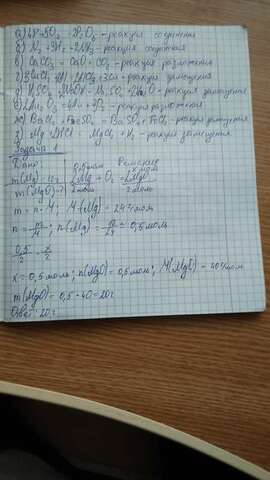 а) 4P+5O₂ 2P₂O₅ - реакция соединения
б) N₂ + 3H₂ = 2NH₃ - реакция соединения
в) CaCO₃ = CaO + CO₂ - реакция разложения
- реакция замещения
д) H₂SO₄ Na₂SO₄ + 2H₂O - реакция замещения
- реакция разложения
ж) BaCl₂ + FeSO₄ = BaSO₄ + FeCl₂ - реакция замещения
з) Mg + 2HCl = MgCl₂ + H₂ - реакция замещения
Задача 1
Дано: Решение
m(Mg) = 12 0,5 моль x моль
2Mg + O₂ = 2MgO
m(MgO) - ? 2 моль 2 моль
m = n · M; M(Mg) = 24 г/моль
n = m/M; n(Mg) = 12/24 = 0,5 моль
0,5/2 x/2
x = 0,5 моль; n(MgO) = 0,5 моль; M(MgO) - 40 г/моль
m(MgO) = 0,5 · 40 = 20 г
Ответ: 20 г